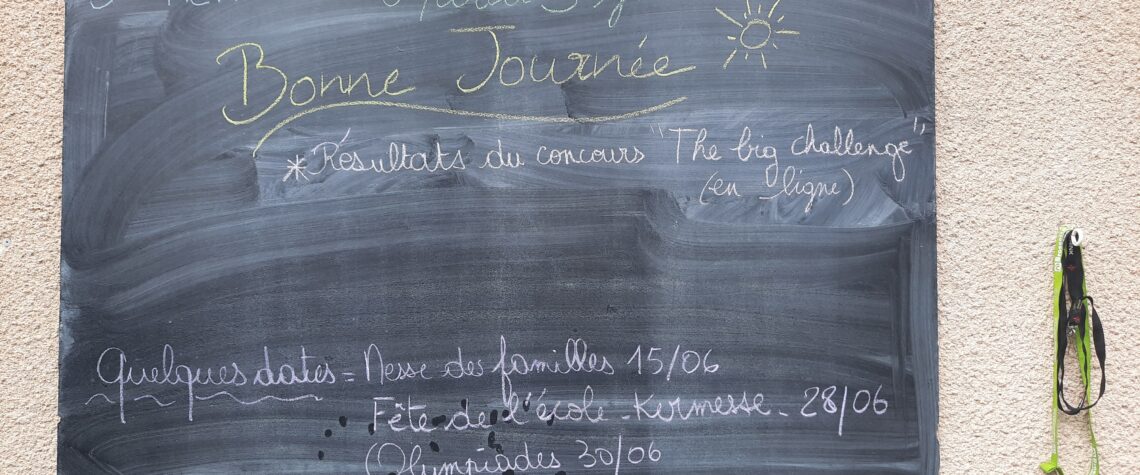 Bonne Journée
* Résultats du concours "The big challenge"
(en ligne)
Quelques dates = Messe des familles 15/06
Fête de l'école - Kermesse - 28/06
(Olympiades 30/06